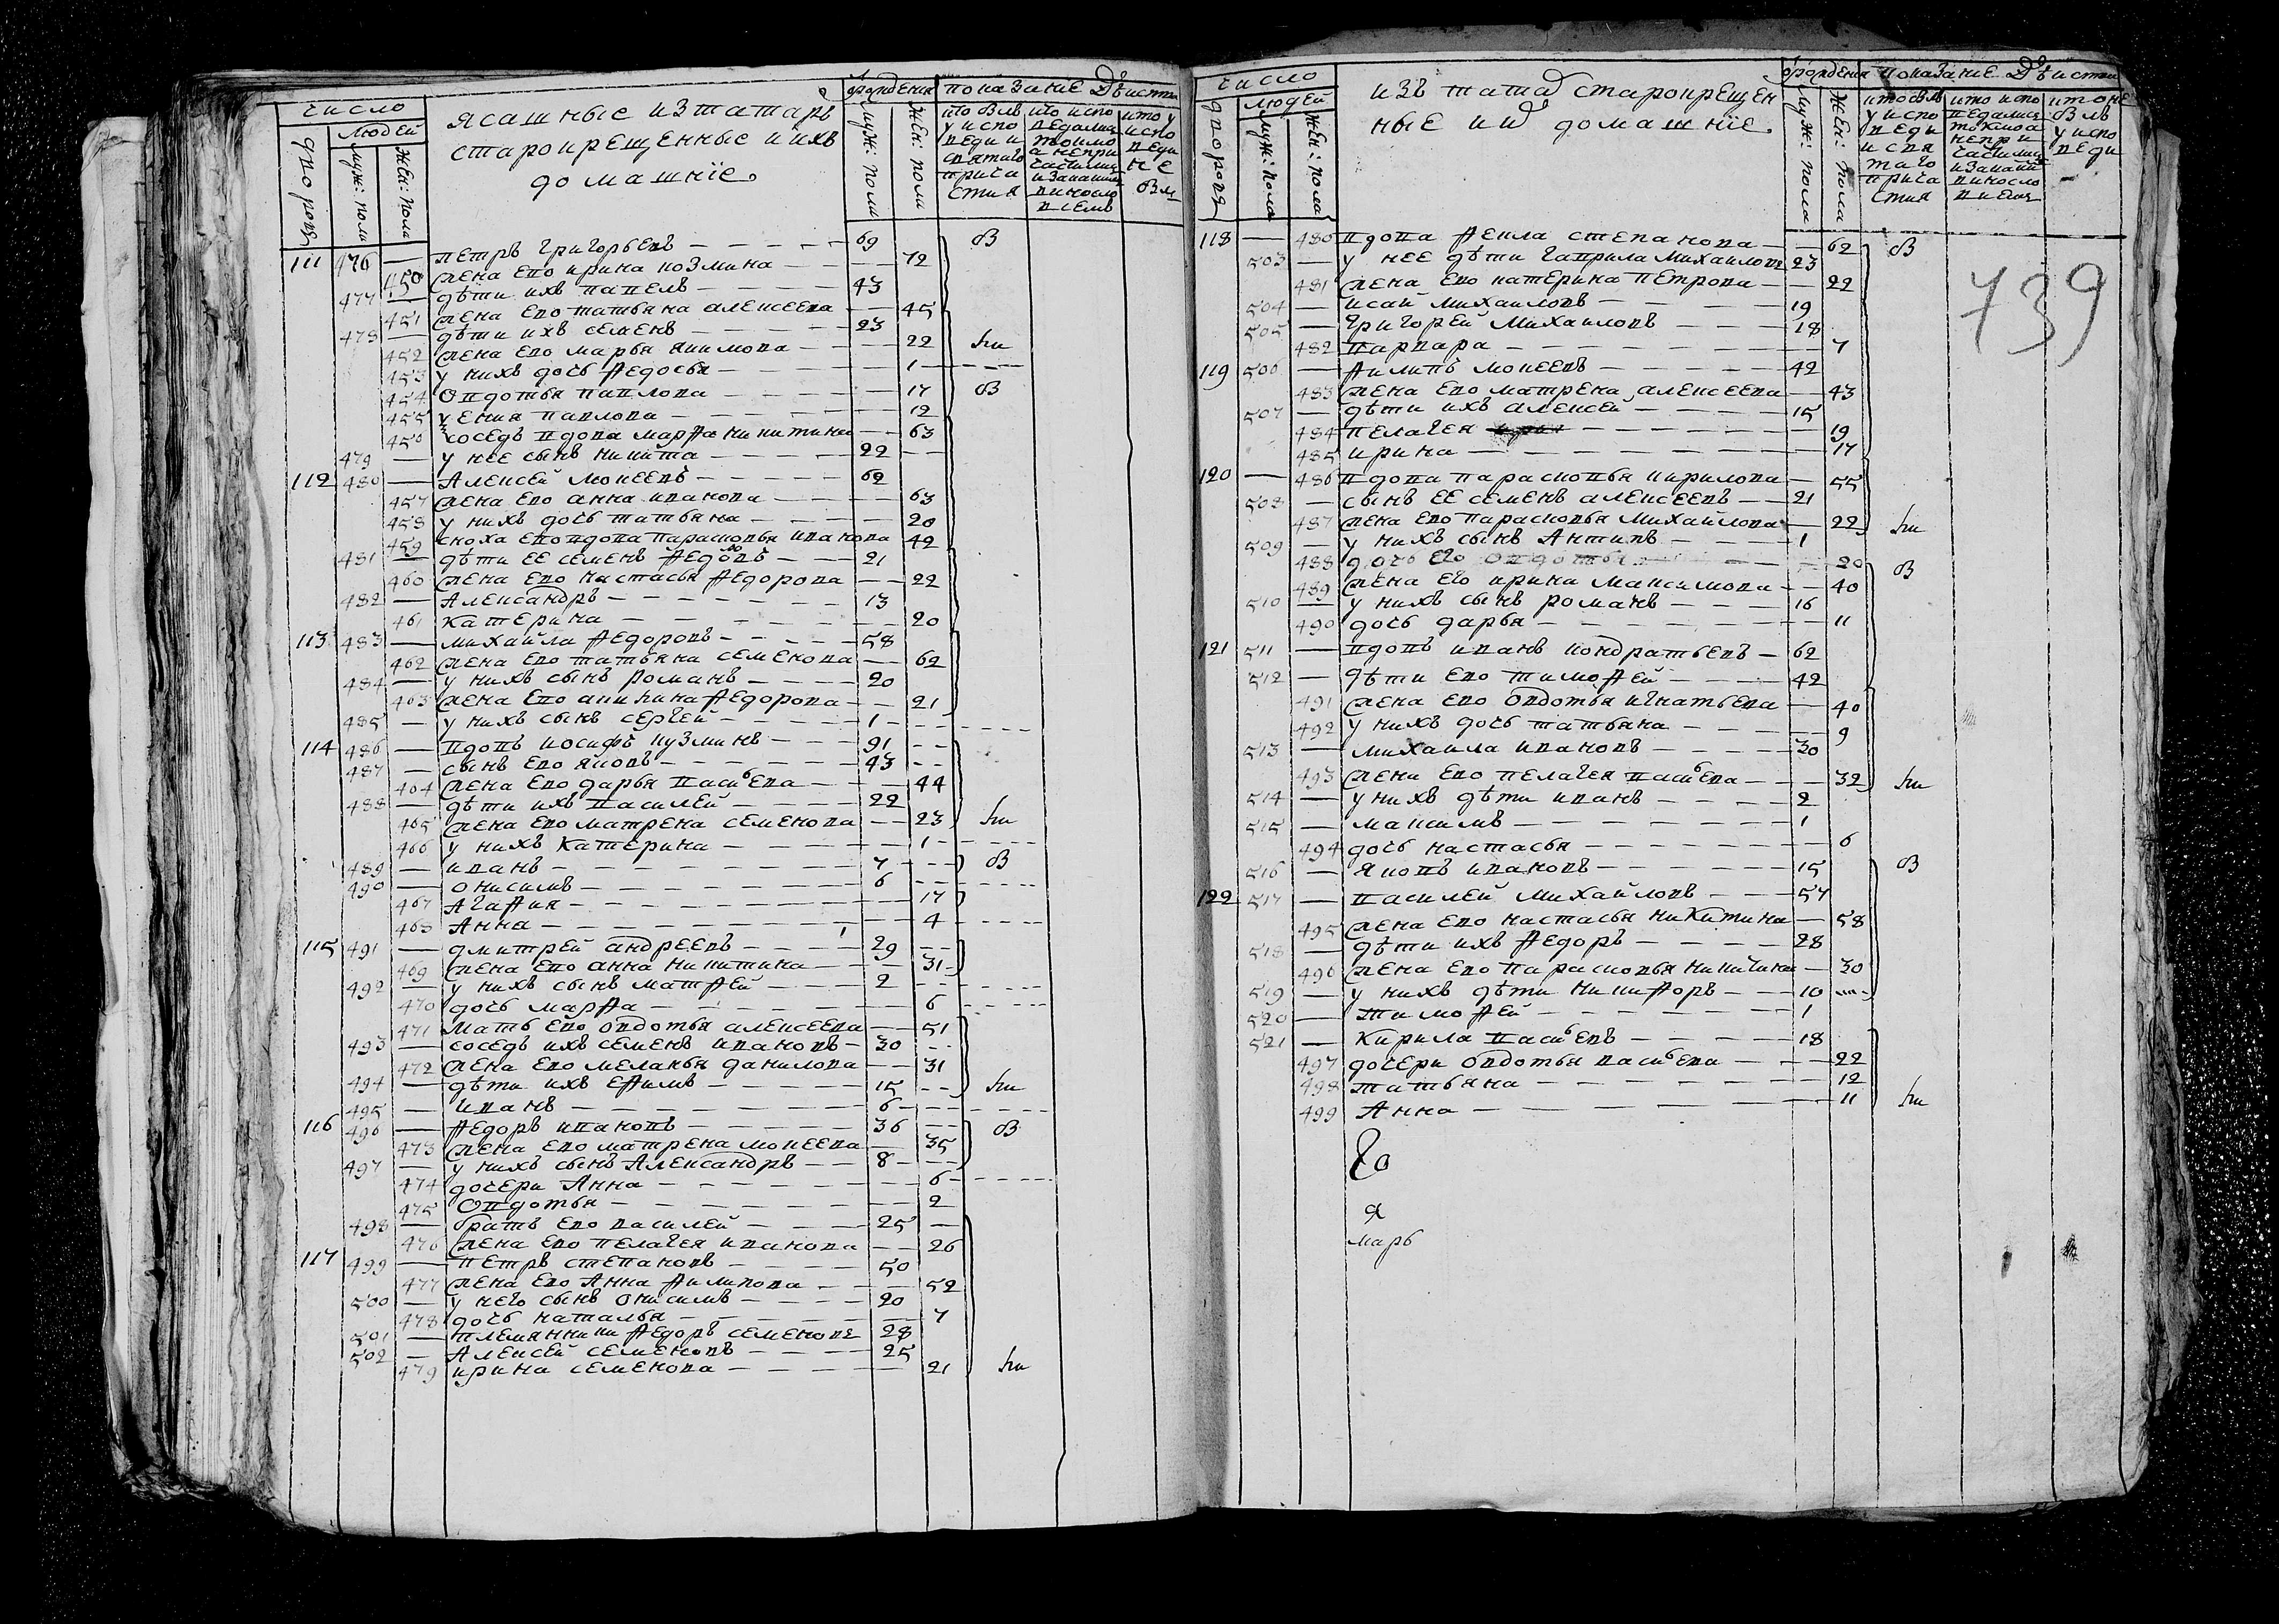 число
дворовъ
людей
муж: пола
жен: пола
ясашные изтатаръ
старокрещенные иихъ
домашнїе
ѿрождения
муж: пола
жен: пола
показание дѣиств
кто былъ у исповеди и святаго причастия
кто исповедались токмо а непричастились и за какимъ винословиемъ
кто у исповеди не был
111 476 — петръ григорьевъ — 69
450 жена ево ирина козмина — 72
477 — дѣти ихъ павелъ — 43
451 жена ево татьяна алексеева — 45
478 — дѣти ихъ семенъ — 23
452 жена ево марья якимова — 22
453 у нихъ дочь ѳедосья — 1
454 Овдотья павлова — 17
455 уения павлова — 12
456 соседъ вдова марѳа никитина — 63
479 — у нее сынъ никита — 22
112 480 — Алексей мокеевъ — 62
457 жена ево анна иванова — 63
458 у нихъ дочь татьяна — 20
459 сноха ево вдова парасковья иванова 42
481 — дѣти ее семенъ ѳедоровъ — 21
460 жена ево настасья ѳедорова — 22
482 — Александръ — 13
461 катерина — 20
113 483 — михайла ѳедоровъ — 58
462 жена ево татьяна семенова — 62
484 — у нихъ сынъ романъ — 20
463 жена ево акилина ѳедорова — 21
485 — у нихъ сынъ сергей — 1
114 486 — вдовъ иосифъ кузминъ — 91
487 — сынъ ево яковъ — 43
464 жена ево дарья васильева — 44
488 — дѣти ихъ василей — 22
465 жена ево матрена семенова — 23
466 у нихъ катерина — 1
489 — иванъ — 7
490 — онисимъ — 6
467 Агаѳия — 17
468 Анна — 4
115 491 — дмитрей андреевъ — 29
469 жена ево анна никитина — 31
492 — у нихъ сынъ матѳей — 2
470 дочь марѳа — 6
471 мать ево овдотья алексеева — 51
493 — соседъ ихъ семенъ ивановъ — 30
472 жена ево меланья данилова — 31
494 — дѣти ихъ еѳимъ — 15
495 — иванъ — 6
116 496 — ѳедоръ ивановъ — 36
473 жена ево матрена мокеева — 35
497 — у нихъ сынъ Александръ — 8
474 дочери Анна — 6
475 Овдотья — 2
498 — братъ ево василей — 25
476 жена ево пелагея иванова — 26
117 499 — петръ степановъ — 50
477 жена ево Анна ѳилипова — 52
500 — у него сынъ онисимъ — 20
478 дочь наталья — 7
501 — племянники ѳедоръ семеновъ 28
502 — Алексей семеновъ — 25
479 ирина семенова — 21
число
дворовъ
людей
муж: пола
жен: пола
изъ татаръ старокрещен
ные и их домашнїе
ѿрождения
муж: пола
жен: пола
показание дѣиств
кто былъ у исповеди и святаго причастия
кто исповедались токмо а непричастились и за какимъ виносло
кто не былъ у исповеди
739
118 — 480 вдова ѳекла степанова — 62
503 — у нее дѣти гаврила михаиловъ 23
481 жена ево катерина петрова — 22
504 — исай михаиловъ — 19
505 — григорей михаиловъ — 18
482 варвара — 7
119 506 — ѳилипъ мокеевъ — 42
483 жена ево матрена алексеева — 43
507 — дѣти ихъ алексей — 15
484 пелагея — 19
485 ирина — 17
120 — 486 вдова парасковья кирилова — 55
508 — сынъ ее семенъ алексеевъ — 21
487 жена ево парасковья михайлова — 22
509 — у нихъ сынъ Антипъ — 1
488 дочь его овдотья — 20
489 жена его ирина максимова — 40
510 — у нихъ сынъ романъ — 16
490 дочь дарья — 11
121 511 — вдовъ иванъ кондратьевъ — 62
512 — дѣти ево тимоѳей — 42
491 жена ево овдотья игнатьева — 40
492 у нихъ дочь татьяна — 9
513 — михаила ивановъ — 30
493 жена ево пелагея васильева — 32
514 — у нихъ дѣти иванъ — 2
515 — максимъ — 1
494 дочь настасья — 6
516 — яковъ ивановъ — 15
122 517 — василей михайловъ — 57
495 жена ево настасья никитина — 58
518 — дѣти ихъ ѳедоръ — 28
496 жена ево парасковья никитина — 30
519 — у нихъ дѣти никиѳоръ — 10
520 — тимоѳей — 1
521 — кирила васильевъ — 18
497 дочери овдотья васильева — 22
498 татьяна — 12
499 Анна — 11
я
марь